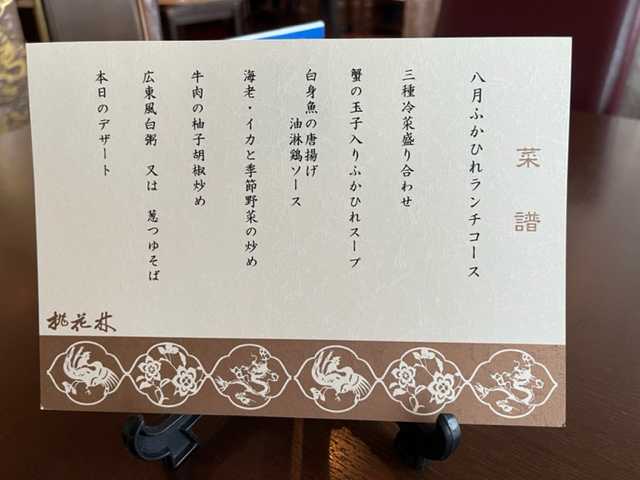 菜譜
八月ふかひれランチコース
三種冷菜盛り合わせ
蟹の玉子入りふかひれスープ
白身魚の唐揚げ
油淋鶏ソース
海老・イカと季節野菜の炒め
牛肉の柚子胡椒炒め
広東風白粥 又は 葱つゆそば
本日のデザート
桃花林